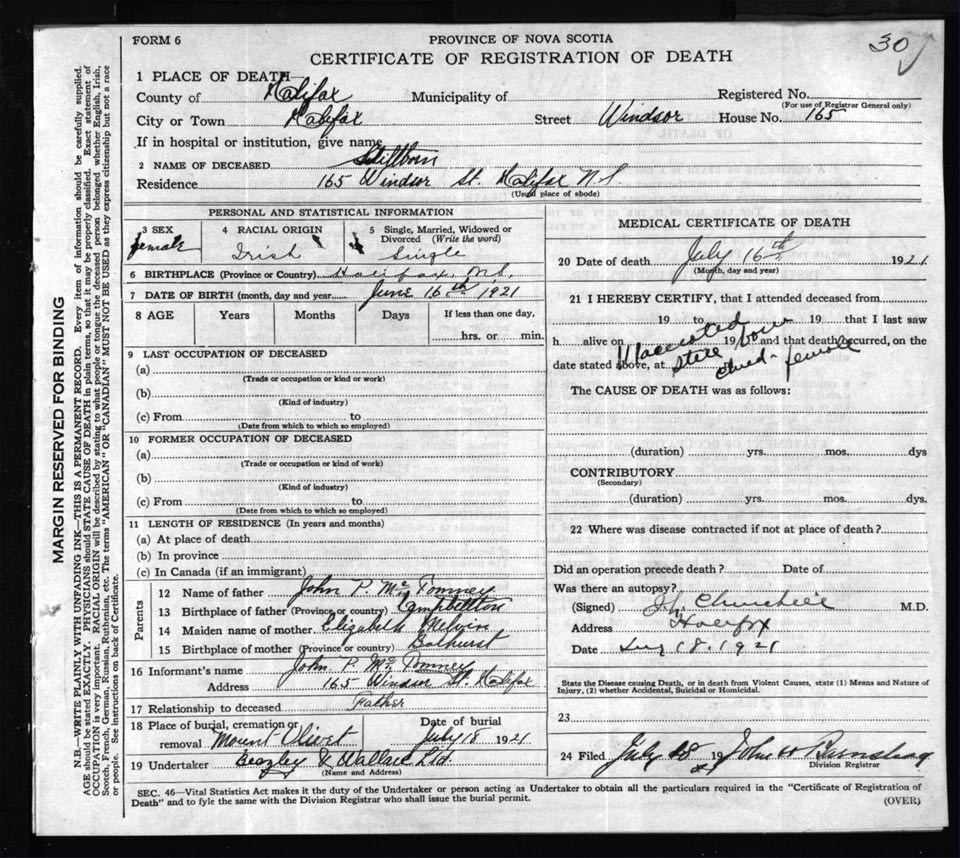 30
FORM 6
PROVINCE OF NOVA SCOTIA
CERTIFICATE OF REGISTRATION OF DEATH
1 PLACE OF DEATH
County of Halifax Municipality of Registered No.
(For use of Registrar General only)
City or Town Halifax Street Windsor House No. 165
If in hospital or institution, give name
2 NAME OF DECEASED Stillborn
Residence 165 Windsor St. Halifax N.S.
(Usual place of abode)
PERSONAL AND STATISTICAL INFORMATION
3 SEX 4 RACIAL ORIGIN 5 Single, Married, Widowed or
Divorced (Write the word)
female Irish Single
6 BIRTHPLACE (Province or Country) Halifax, N.S.
7 DATE OF BIRTH (month, day and year) June 16th 1921
8 AGE Years Months Days If less than one day,
hrs. or min.
9 LAST OCCUPATION OF DECEASED
(a)
(Trade or occupation or kind or work)
(b)
(Kind of industry)
(c) From to
(Date from which to which so employed)
10 FORMER OCCUPATION OF DECEASED
(a)
(Trade or occupation or kind of work)
(b)
(Kind of industry)
(c) From to
(Date from which to which so employed)
11 LENGTH OF RESIDENCE (In years and months)
(a) At place of death
(b) In province
(c) In Canada (if an immigrant)
Parents
12 Name of father John P. Mc Tomney
13 Birthplace of father (Province or country) Campbellton
14 Maiden name of mother Elizabeth Melvin
15 Birthplace of mother (Province or country) Bathurst
16 Informant's name John P. Mc Tomney
Address 165 Windsor St. Halifax
17 Relationship to deceased Father
18 Place of burial, cremation or Date of burial
removal Mount Olivet July 18 1921
19 Undertaker Beazley & Wallace Ltd.
(Name and Address)
MEDICAL CERTIFICATE OF DEATH
20 Date of death July 16th 1921
(Month, day and year)
21 I HEREBY CERTIFY, that I attended deceased from
19 to 19 that I last saw
h alive on 19 and that death occurred, on the
date stated above, at
Macerated
still born
child - female
The CAUSE OF DEATH was as follows:
(duration) yrs. mos. dys
CONTRIBUTORY
(Secondary)
(duration) yrs. mos. dys.
22 Where was disease contracted if not at place of death?
Did an operation precede death? Date of
Was there an autopsy?
(Signed) Churchill M.D.
Address Halifax
Date 18. 1921
State the Disease causing Death, or in death from Violent Causes, state (1) Means and Nature of
Injury, (2) whether Accidental, Suicidal or Homicidal.
23
24 Filed July 19 John
Division Registrar
SEC. 46—Vital Statistics Act makes it the duty of the Undertaker or person acting as Undertaker to obtain all the particulars required in the "Certificate of Registration of
Death" and to fyle the same with the Division Registrar who shall issue the burial permit.
(OVER)
MARGIN RESERVED FOR BINDING
N.B.—WRITE PLAINLY WITH UNFADING INK—THIS IS A PERMANENT RECORD. Every item of information should be carefully supplied.
AGE should be stated EXACTLY. PHYSICIANS should STATE CAUSE OF DEATH in plain terms, so that it may be properly classified. Exact statement of
OCCUPATION is very important. RACIAL ORIGIN will be described by stating to what people or tongue the deceased person belonged whether English, Irish,
Scotch, French, German, Russian, Ruthenian, etc. The terms "AMERICAN" OR "CANADIAN" MUST NOT BE USED as they express citizenship but not a race
or people. See instructions on back of Certificate.